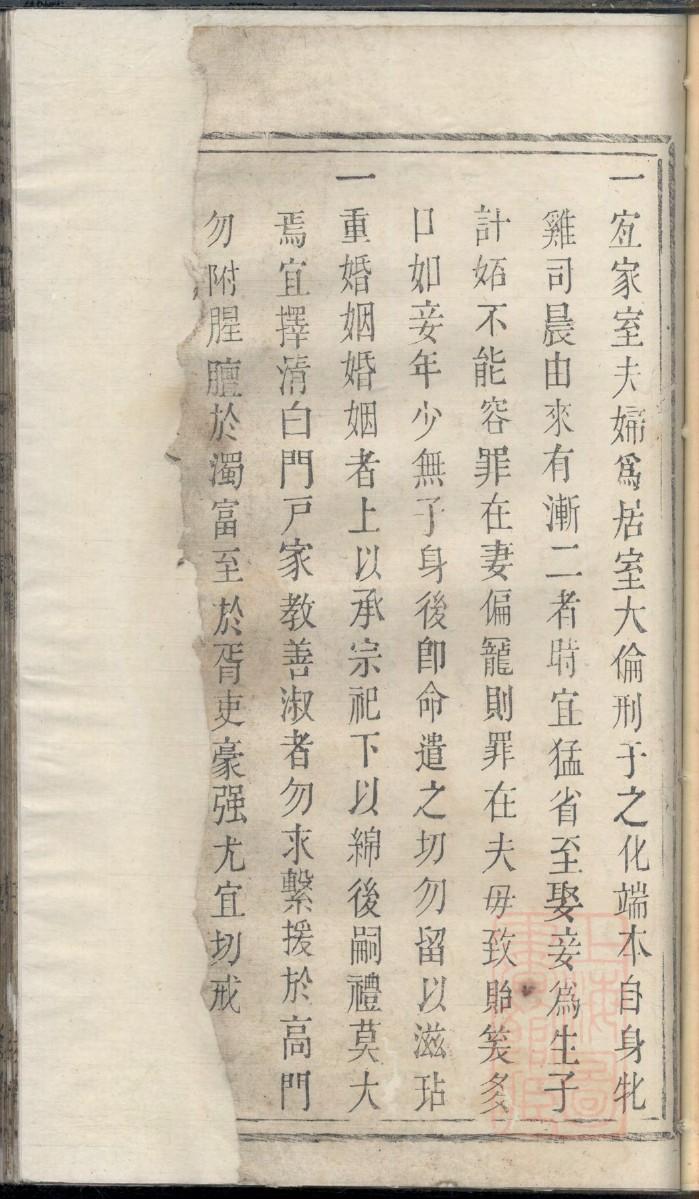 一宜家室夫婦爲居室大倫刑于之化端本自身牝
雞司晨由來有漸二者時宜猛省至娶妾爲生子
計妬不能容罪在妻偏寵則罪在夫毋致貽笑多
口如妾年少無子身後卽命遣之切勿留以滋玷
一重婚姻婚姻者上以承宗祀下以綿後嗣禮莫大
焉宜擇清白門戸家教善淑者勿求繫援於高門
勿附腥膻於濁富至於胥吏豪强尤宜切戒